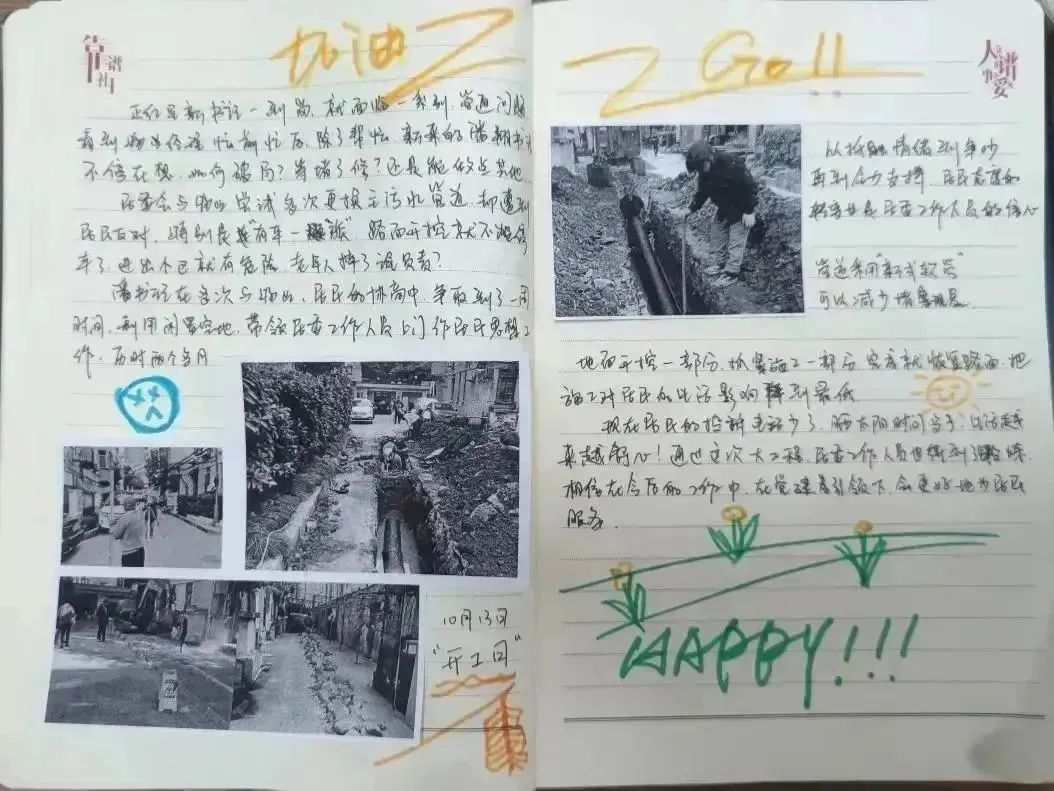 加油
靠谱社工
正红里新书记一到岗,就面临一系列管道问题
看到物业经理忙前忙后,除了帮忙,新来的潘书记
不停在想,如何破局?等堵了修?还是能做点其他
居委会与物业尝试多次更换主污水管道,却遭到
居民反对,特别是“有车一族”,路面开挖就不能停
车了,进出不已就有危险,老年人摔了谁负责?
潘书记在多次与物业、居民的协商中,争取到了一周
时间,利用闲置空地,带领居委工作人员上门作居民思想工
作,历时两个多月
10月13日
“开工日”
Go!!
人民的事
从抵触情绪到争吵
再到全力支持,居民态度的
转变也是居委工作人员的信心
管道采用“新式软管”
可以减少堵塞现象
地面开挖一部分,抓紧施工一部分,完成就恢复路面,把
施工对居民的生活影响降到最低
现在居民的投诉电话少了,晒太阳时间多了,生活越
来越舒心!通过这次大工程,居委工作人员也得到了锻炼,
相信在今后的工作中,在党建引领下,会更好地为居民
服务.
HAPPY!!!